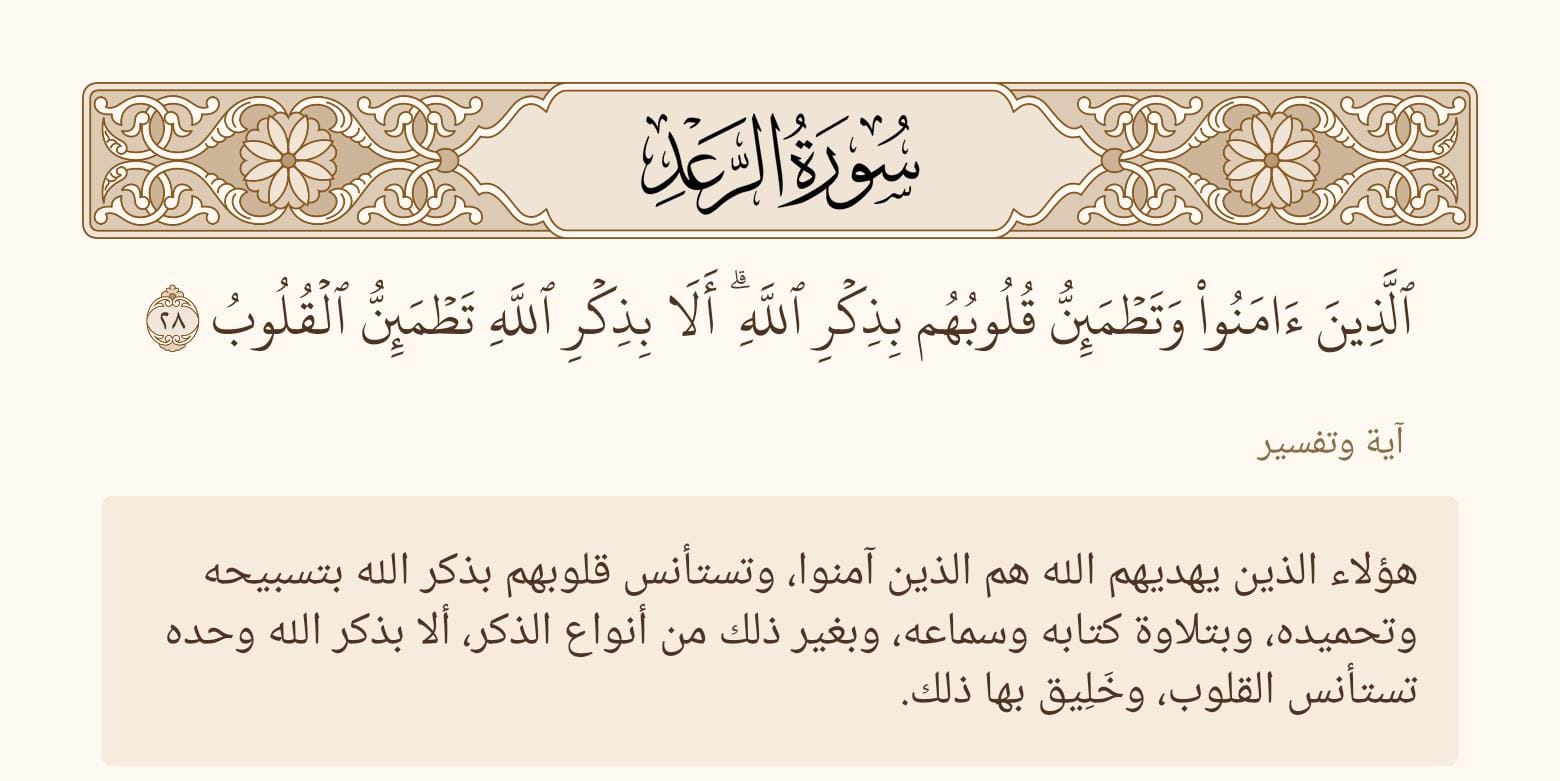 سُورَةُ الرَّعْدِ
ٱلَّذِينَ ءَامَنُوا۟ وَتَطْمَئِنُّ قُلُوبُهُم بِذِكْرِ ٱللَّهِ ۗ أَلَا بِذِكْرِ ٱللَّهِ تَطْمَئِنُّ ٱلْقُلُوبُ ٢٨
آية وتفسير
هؤلاء الذين يهديهم الله هم الذين آمنوا، وتستأنس قلوبهم بذكر الله بتسبيحه
وتحميده، وبتلاوة كتابه وسماعه، وبغير ذلك من أنواع الذكر، ألا بذكر الله وحده
تستأنس القلوب، وخَلِيق بها ذلك.